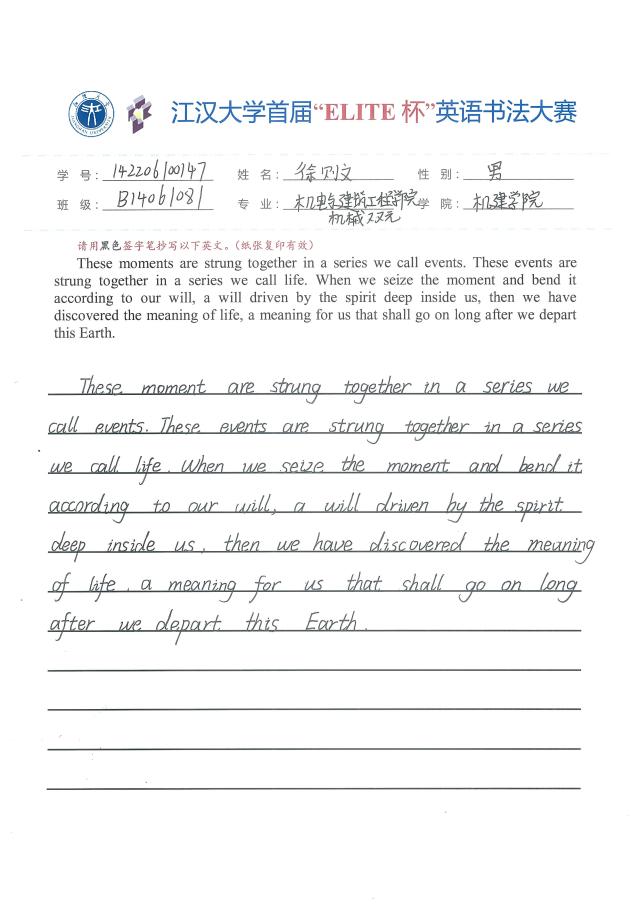 江汉大学首届“ELITE 杯”英语书法大赛
学 号：142206100147 姓 名：徐则文 性 别：男
班 级：B14061081 专 业：机电与建筑工程学院 机械双元 学 院：机建学院
请用黑色签字笔抄写以下英文。（纸张复印有效）
These moments are strung together in a series we call events. These events are
strung together in a series we call life. When we seize the moment and bend it
according to our will, a will driven by the spirit deep inside us, then we have
discovered the meaning of life, a meaning for us that shall go on long after we depart
this Earth.
These moment are strung together in a series we
call events. These events are strung together in a series
we call life. When we seize the moment and bend it
according to our will, a will driven by the spirit
deep inside us, then we have discovered the meaning
of life, a meaning for us that shall go on long
after we depart this Earth.